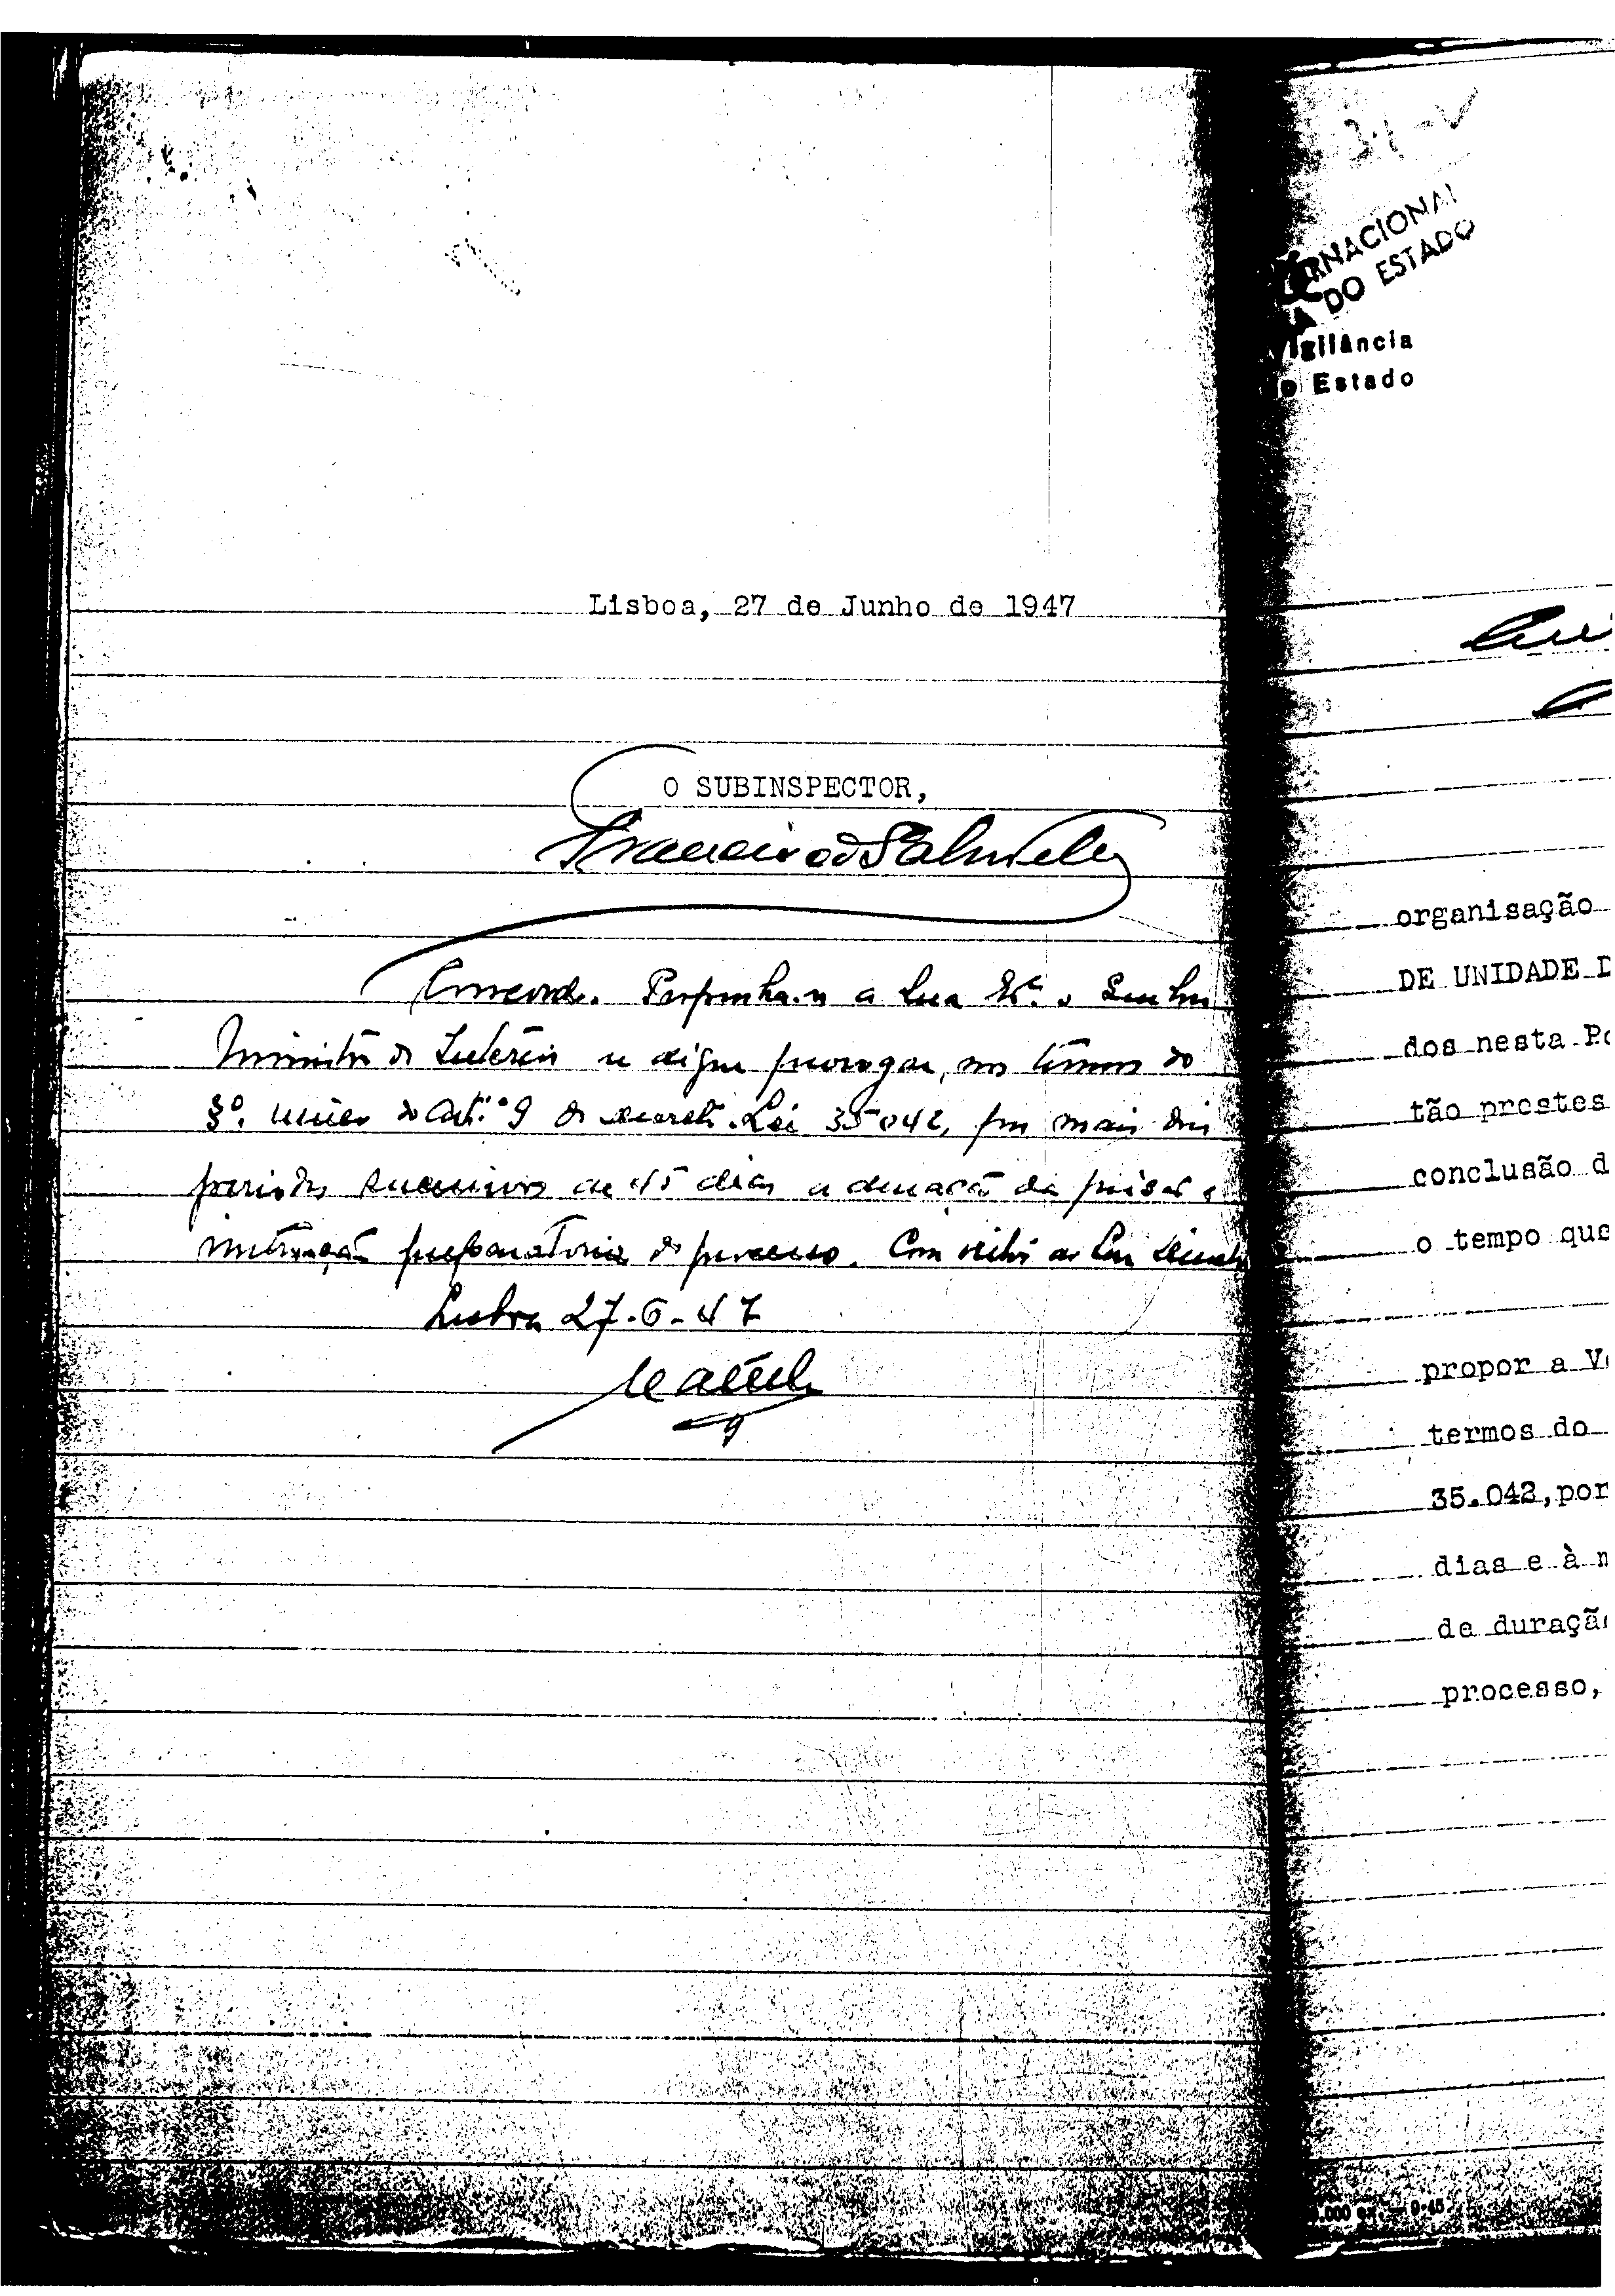 Lisboa, 27 de Junho de 1947
O SUBINSPECTOR,
Concordo. a Sua Exª. o Senhor
Ministro do Interior se digne prorogar, nos termos do
§º. unico do Artº. 9 do decreto-Lei 35042, por mais dois
periodos sucessivos de 45 dias a duração da prisão e
instrução preparatoria do processo. Com
Lisboa 27-6-47
31-V
RNACIONAL
A DO ESTADO
Vigilância
o Estado
organisação
DE UNIDADE D
dos nesta Po
tão prestes
conclusão d
o tempo que
propor a V
termos do
35.042, por
dias e à m
de duraçã
processo,
.000 ex. — 9-45